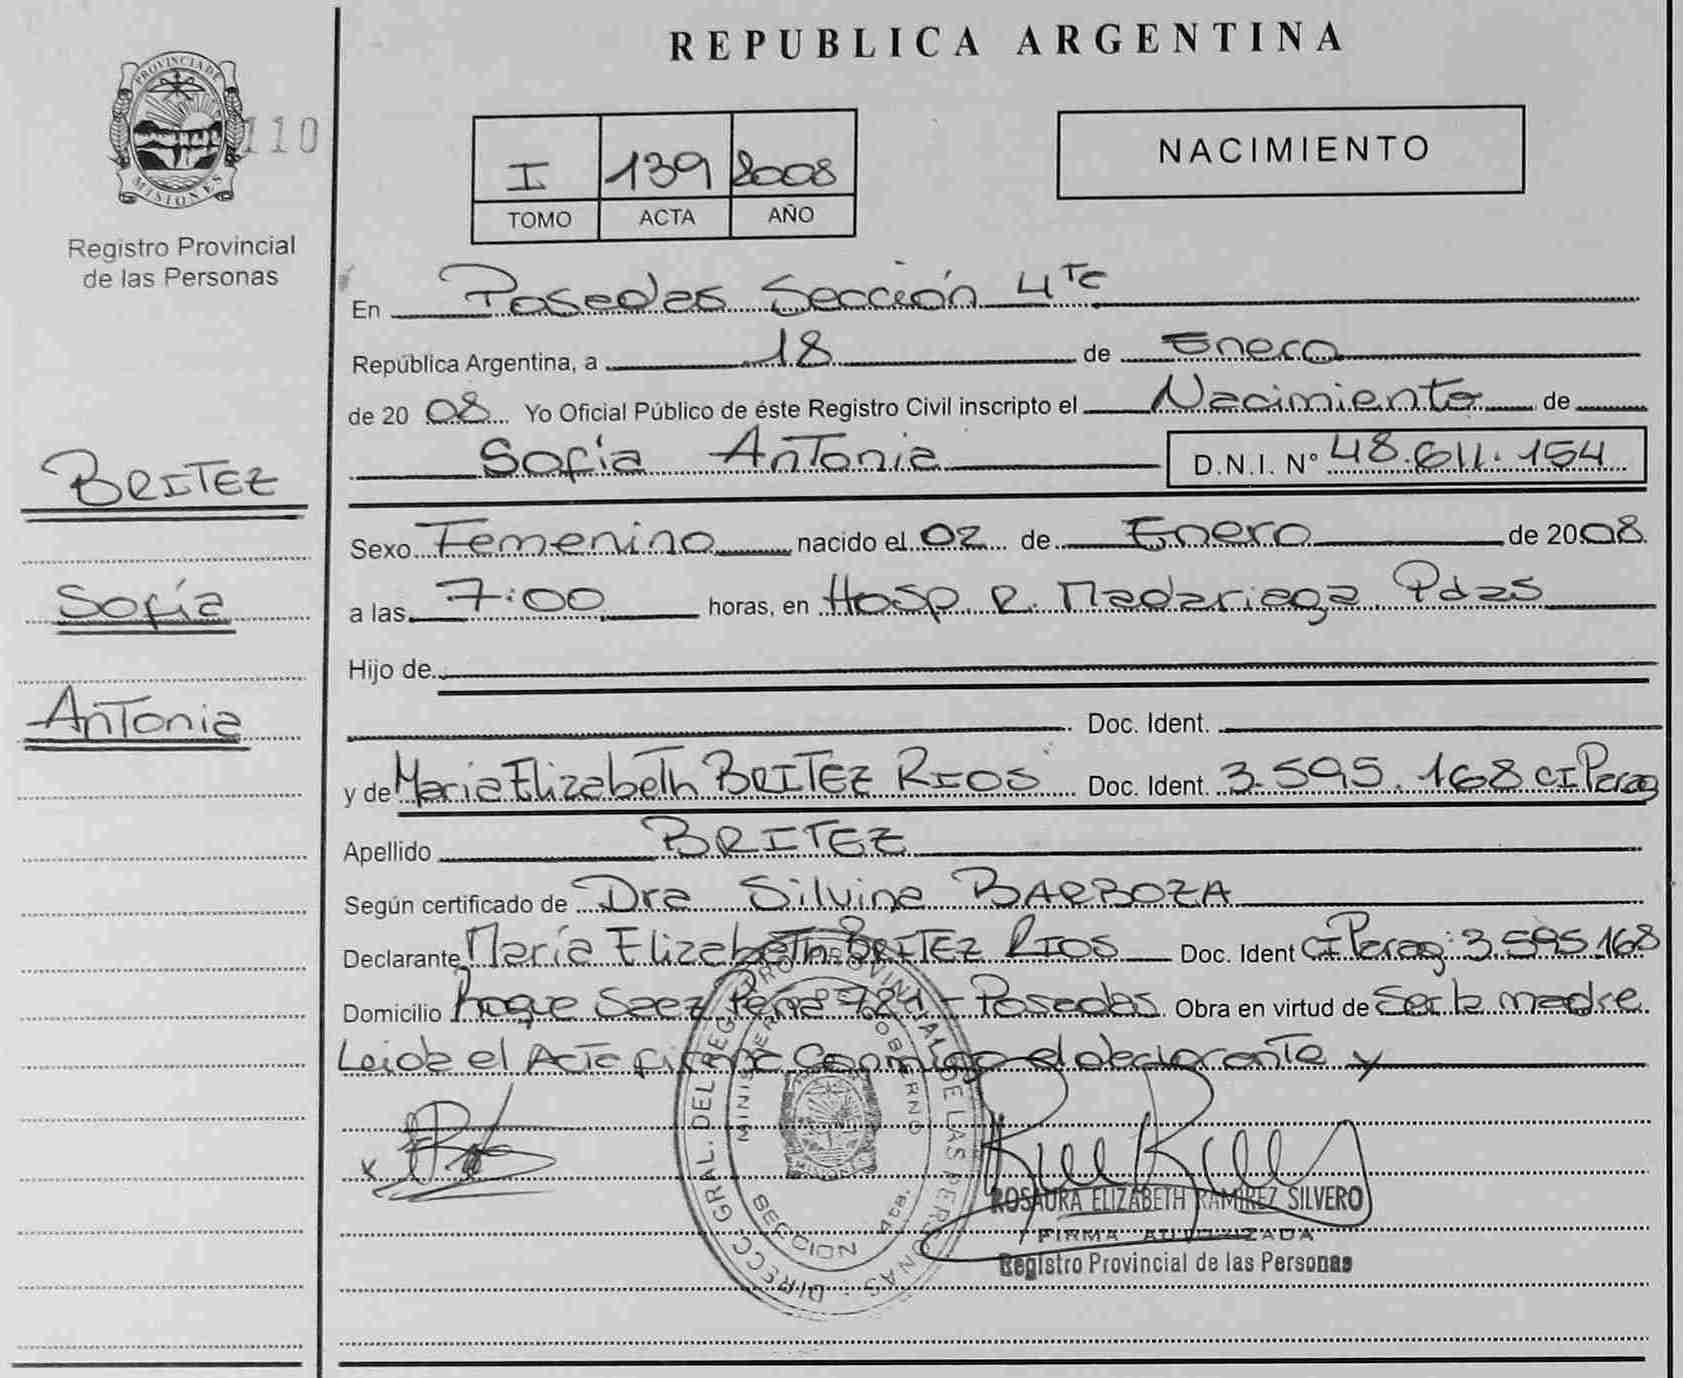 REPUBLICA ARGENTINA
PROVINCIA DE
MISIONES
110
Registro Provincial
de las Personas
I 139 2008
TOMO ACTA AÑO
NACIMIENTO
BRITEZ
Sofía
Antonia
En Posadas Sección 4ta
República Argentina, a 18 de Enero
de 2008 Yo Oficial Público de éste Registro Civil inscripto el Nacimiento de
Sofía Antonia D.N.I. N° 48.611.154
Sexo Femenino nacido el 02 de Enero de 2008
a las 7:00 horas, en Hosp R. Madariaga Pdas
Hijo de
Doc. Ident.
y de María Elizabeth BRITEZ RIOS Doc. Ident. 3.595.168 CI Parag
Apellido BRITEZ
Según certificado de Dra Silvina BARBOZA
Declarante María Elizabeth BRITEZ RIOS Doc. Ident CI Parag: 3.595.168
Domicilio Roque Saez Peña - Posadas Obra en virtud de Ser la madre
Leida el Acta firma Conmigo el declarante y
x
DIRECC. GRAL. DEL REG PROVINCIAL DE LAS PERSONAS
MINISTERIO GOBIERNO
MISIONES
SECCION 4ta.
ROSAURA ELIZABETH RAMIREZ SILVERO
FIRMA AUTORIZADA
Registro Provincial de las Personas